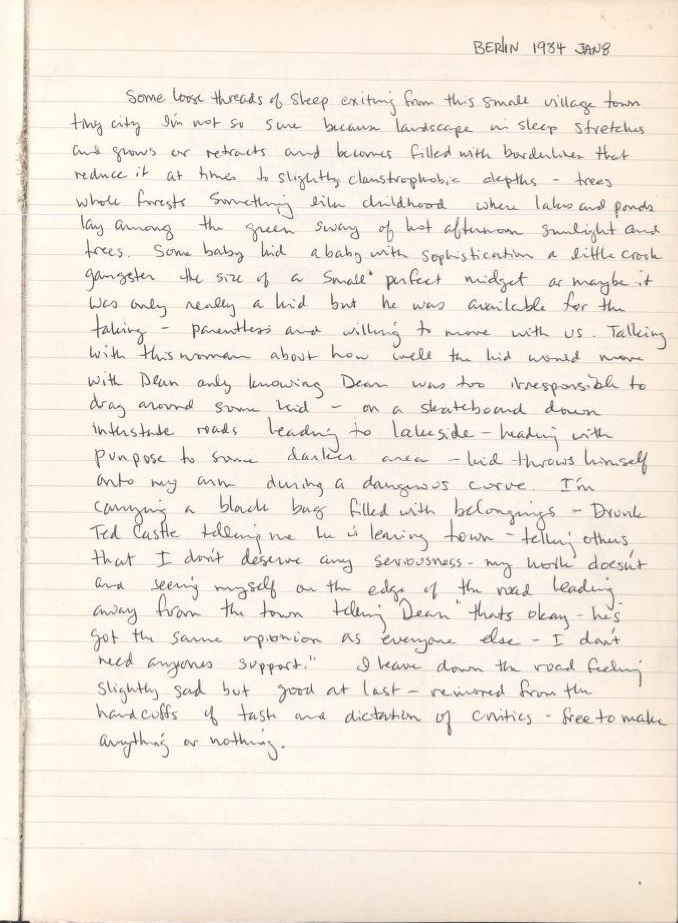 BERLIN 1984 JAN 8
Some loose threads of sleep exiting from this small village town
tiny city I'm not so sure because landscape in sleep stretches
and grows or retracts and becomes filled with borderlines that
reduce it at times to slightly claustrophobic depths - trees
whole forests something like childhood where lakes and ponds
lay among the green sway of hot afternoon sunlight and
trees. Some baby kid a baby with sophistication a little crook
gangster the size of a small perfect midget or maybe it
was only really a kid but he was available for the
taking - parentless and willing to move with us. Talking
with this woman about how well the kid would move
with Dean only knowing Dean was too irresponsible to
drag around some kid - on a skateboard down
interstate roads leading to lakeside - heading with
purpose to some darker area - kid throws himself
onto my arm during a dangerous curve. I'm
carrying a black bag filled with belongings - Drunk
Ted Castle telling me he is leaving town - telling others
that I don't deserve any seriousness - my work doesn't
and seeing myself on the edge of the road leading
away from the town telling Dean "thats okay - he's
got the same opionion as everyone else - I don't
need anyones support." I leave down the road feeling
slightly sad but good at last - removed from the
handcuffs of taste and dictation of critics - free to make
anything or nothing.